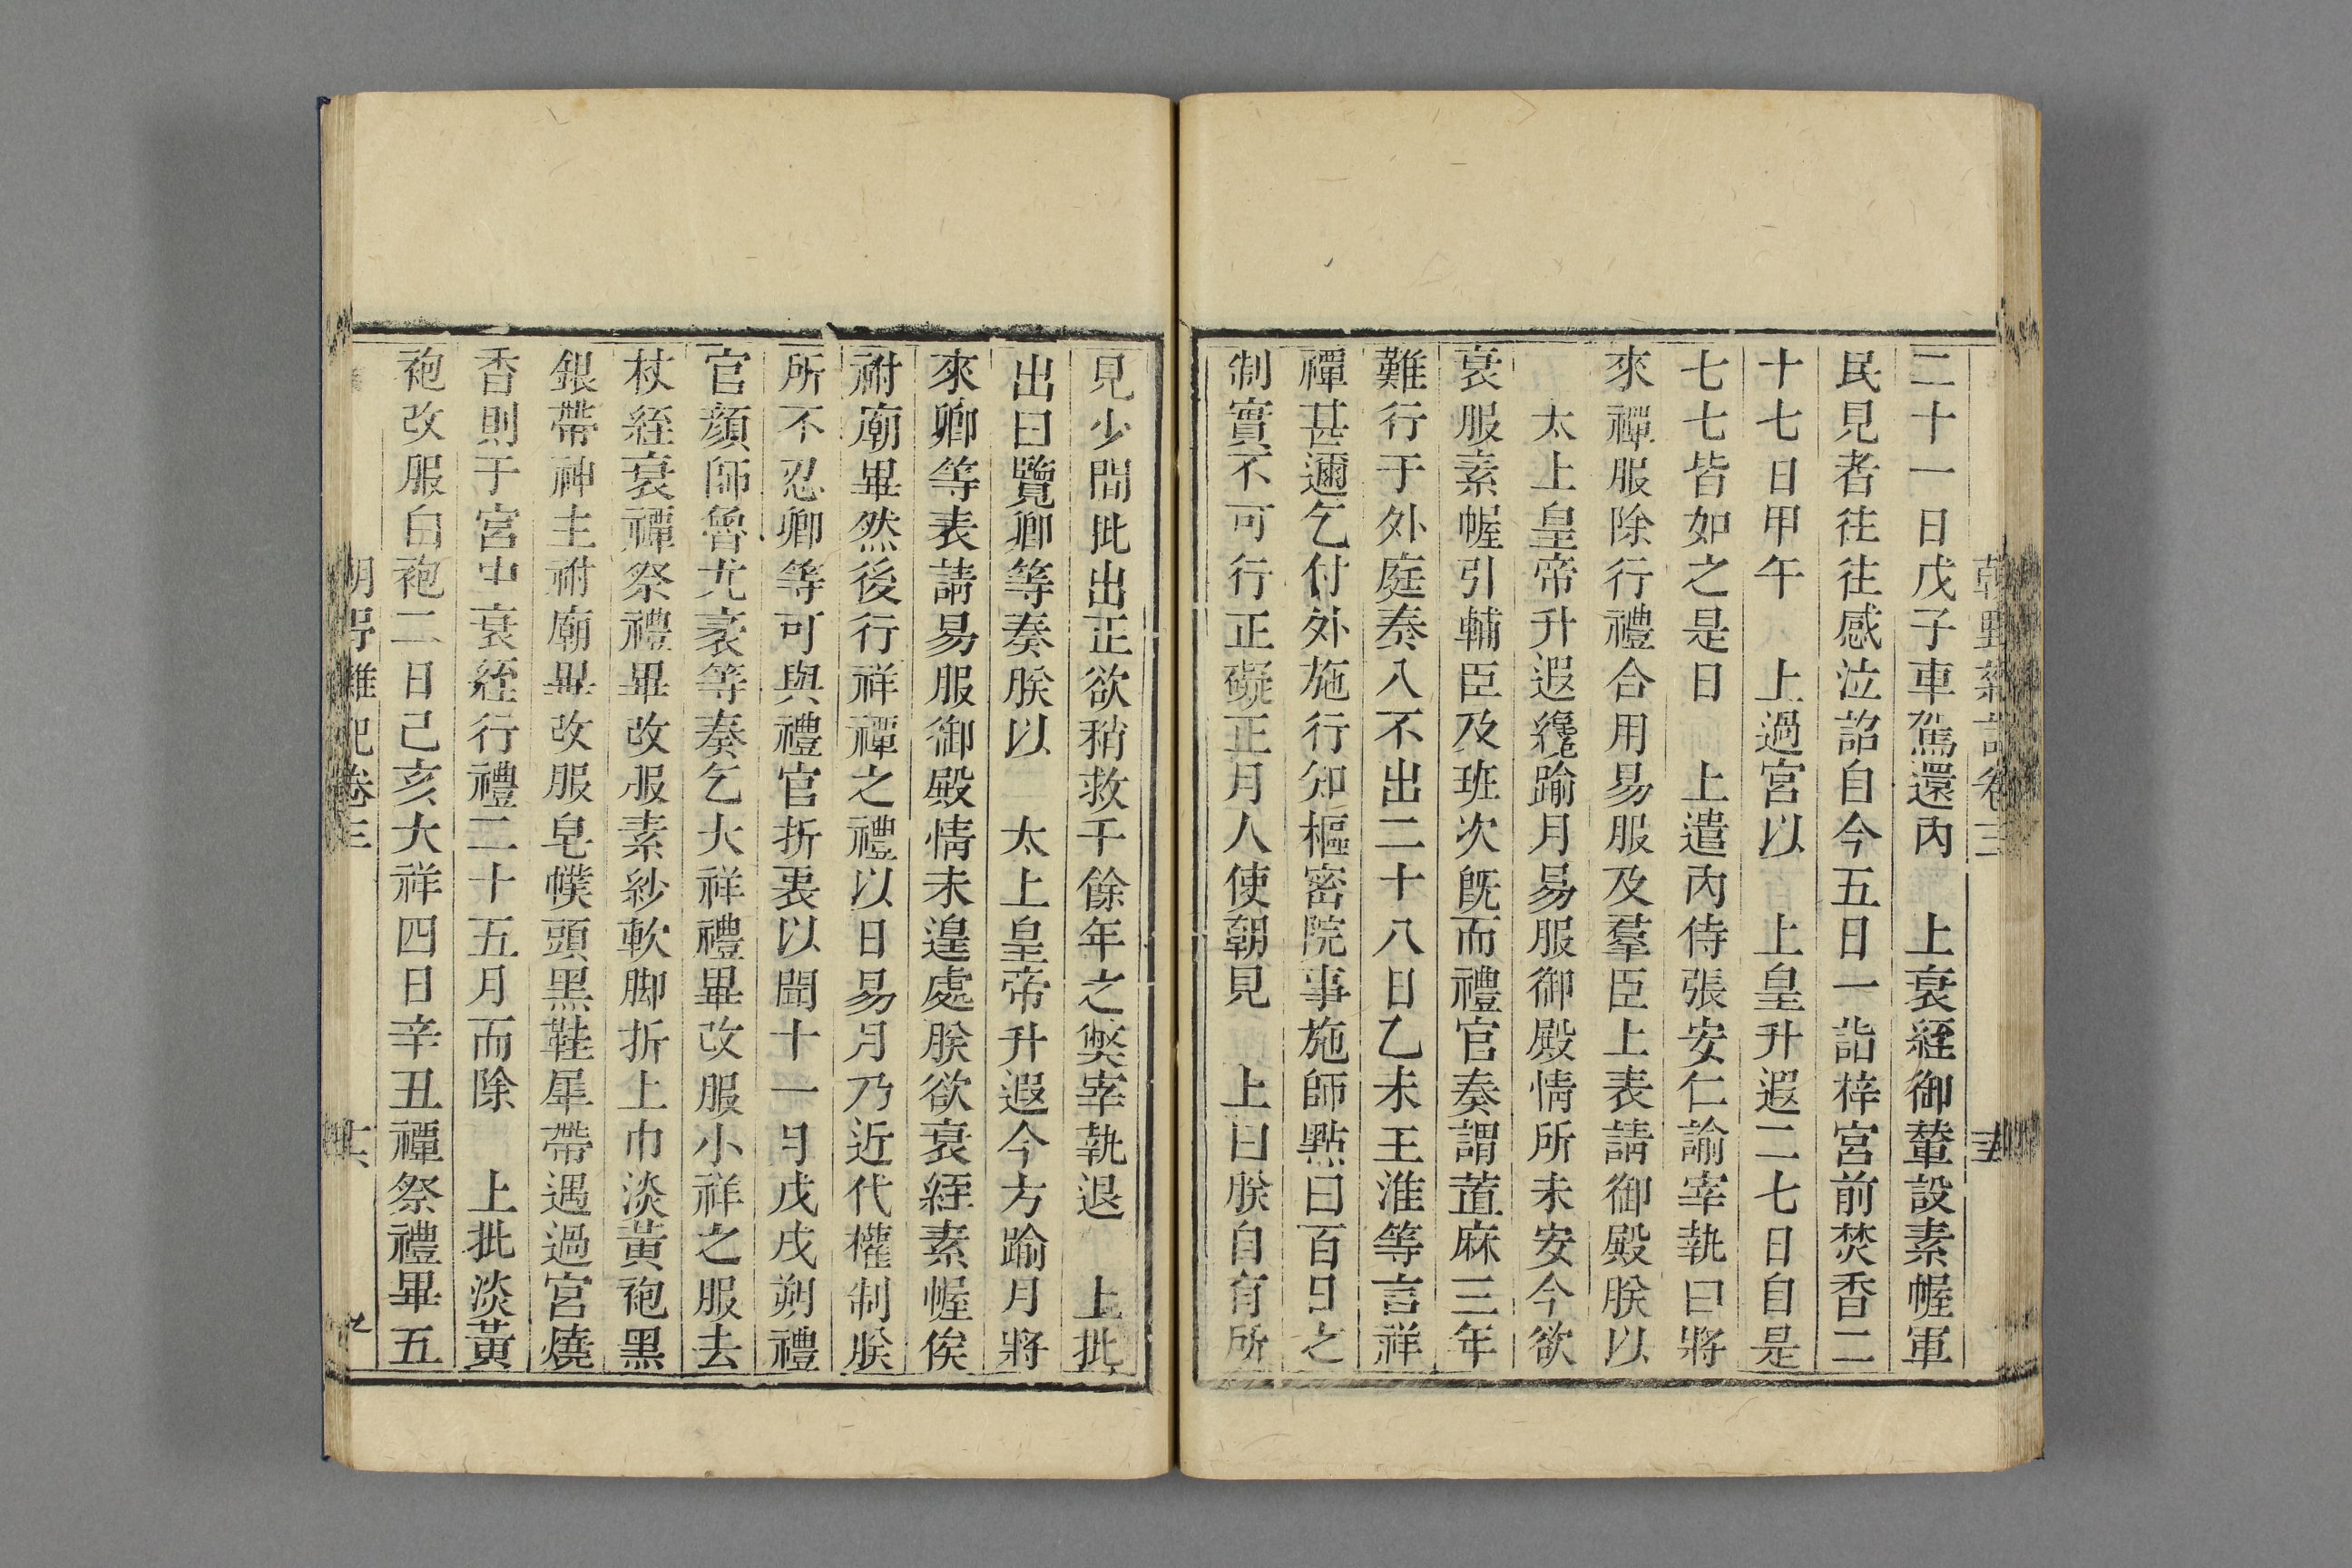 二十一日戊子車駕還內　上衰絰御輦設素幄軍
民見者往往感泣詔自今五日一詣梓宮前焚香二
十七日甲午　上過宮以　上皇升遐二七日自是
七七皆如之是日　上遣內侍張安仁諭宰執曰將
來禫服除行禮合用易服及羣臣上表請御殿朕以
　太上皇帝升遐纔踰月易服御殿情所未安今欲
衰服素幄引輔臣及班次旣而禮官奏謂苴麻三年
難行于外庭奏入不出二十八日乙未王淮等言祥
禫甚邇乞付外施行知樞密院事施師點曰百日之
制實不可行正礙正月人使朝見　上曰朕自有所
見少間批出正欲稍救千餘年之獘宰執退　上批
出曰覽卿等奏朕以　太上皇帝升遐今方踰月將
來卿等表請易服御殿情未遑處朕欲衰絰素幄俟
祔廟畢然後行祥禫之禮以日易月乃近代權制朕
所不忍卿等可與禮官折衷以聞十一月戊戌朔禮
官顏師魯尤袤等奏乞大祥禮畢改服小祥之服去
杖絰衰禫祭禮畢改服素紗軟脚折上巾淡黃袍黑
銀帶神主祔廟畢改服皂幞頭黑鞋犀帶遇過宮燒
香則于宮中衰絰行禮二十五月而除　上批淡黃
袍改服白袍二日己亥大祥四日辛丑禫祭禮畢五
卷三